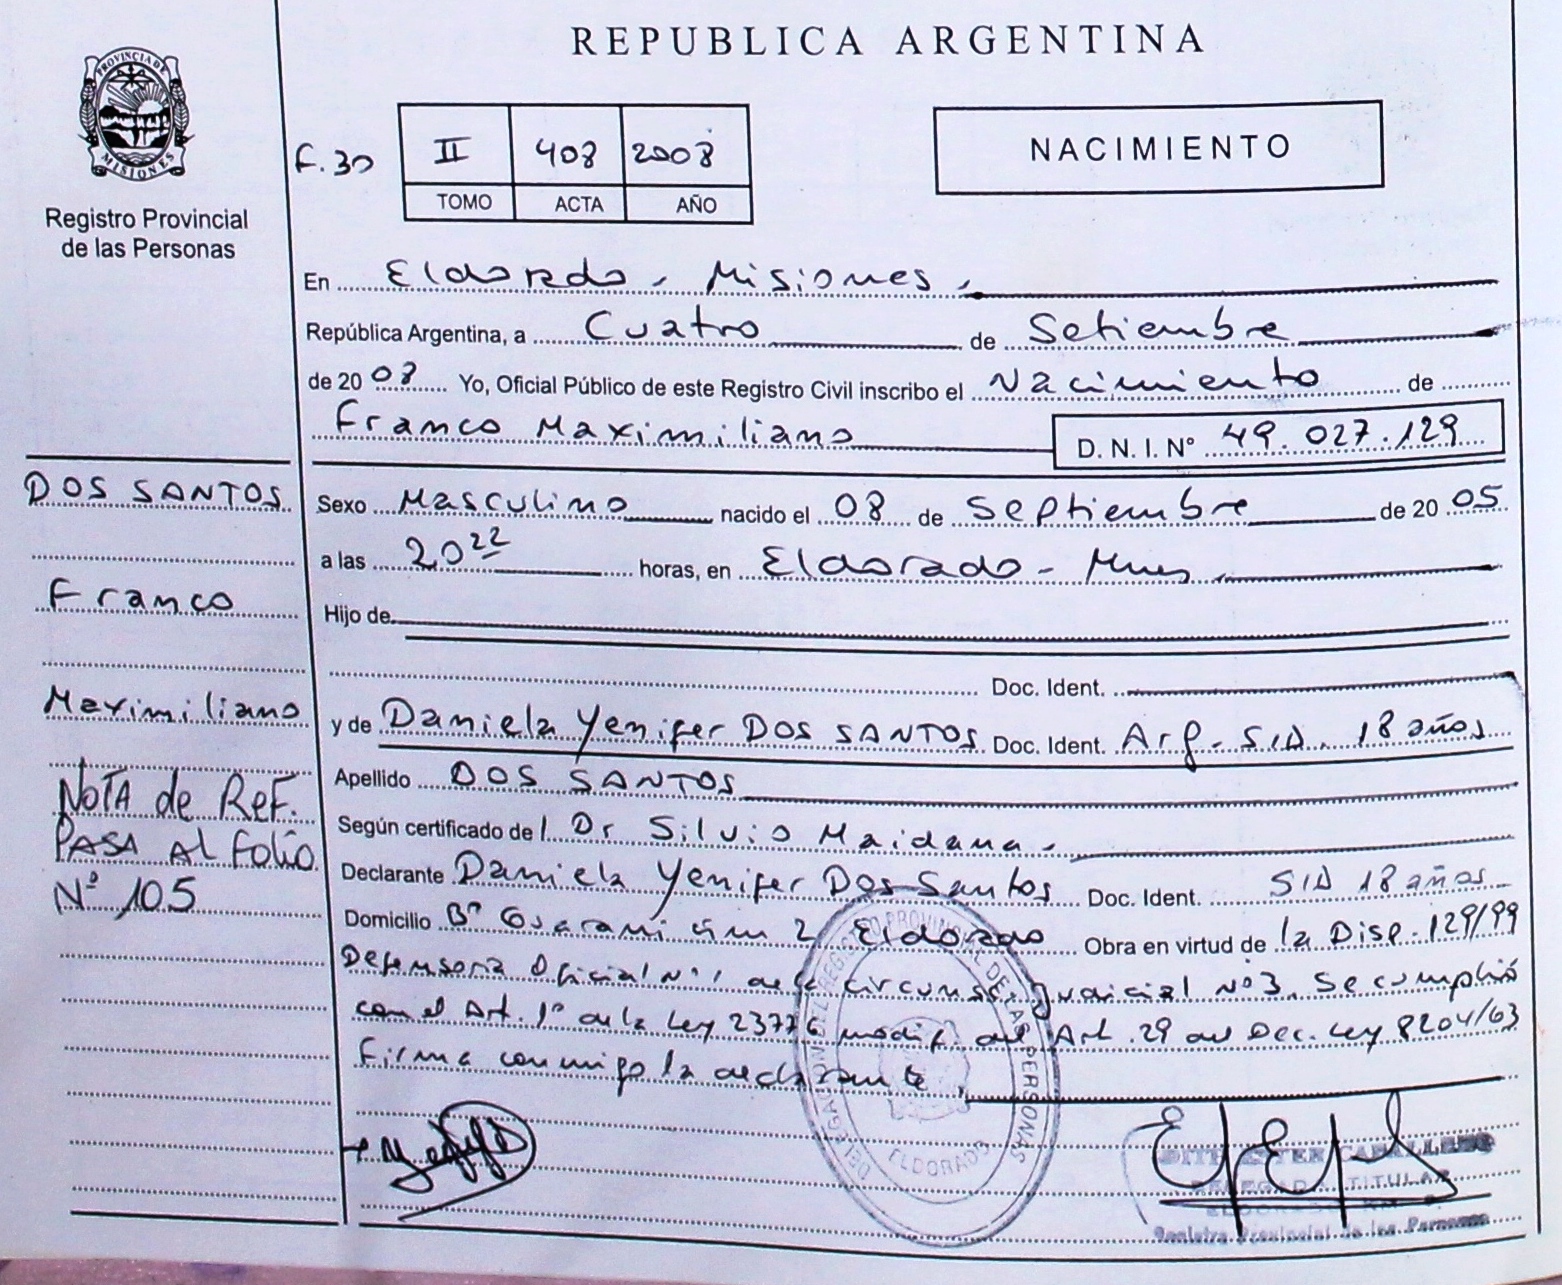 REPUBLICA ARGENTINA
PROVINCIA DE
MISIONES
Registro Provincial
de las Personas
F. 30
II 408 2008
TOMO ACTA AÑO
NACIMIENTO
En Eldorado, Misiones,
República Argentina, a Cuatro de Setiembre
de 2008 Yo, Oficial Público de este Registro Civil inscribo el Nacimiento de
Franco Maximiliano D. N. I. N° 49.027.129
DOS SANTOS
Franco
Maximiliano
NOTA de REF.
PASA AL Folio
N° 105
Sexo Masculino nacido el 08 de Septiembre de 2005
a las 20 22 horas, en Eldorado - Mnes,
Hijo de
Doc. Ident.
y de Daniela Yenifer DOS SANTOS Doc. Ident. Arg. S/D. 18 años
Apellido DOS SANTOS
Según certificado de Dr Silvio Maidana,
Declarante Daniela Yenifer Dos Santos Doc. Ident. S/D 18 años
Domicilio B° Guarani Km 2 Eldorado Obra en virtud de la Disp. 129/99
Defensoria Oficial N° 1 de la circunsc. Judicial N° 3. Se cumplió
con el Art. 1° de la Ley 23776 modif. del Art. 29 del Dec. Ley 8204/63
Firma conmigo la declarante,
REGISTRO PROVINCIAL DE LAS PERSONAS
ELDORADO
ESTER CABALLERO
TITULAR
Registro Provincial de las Personas